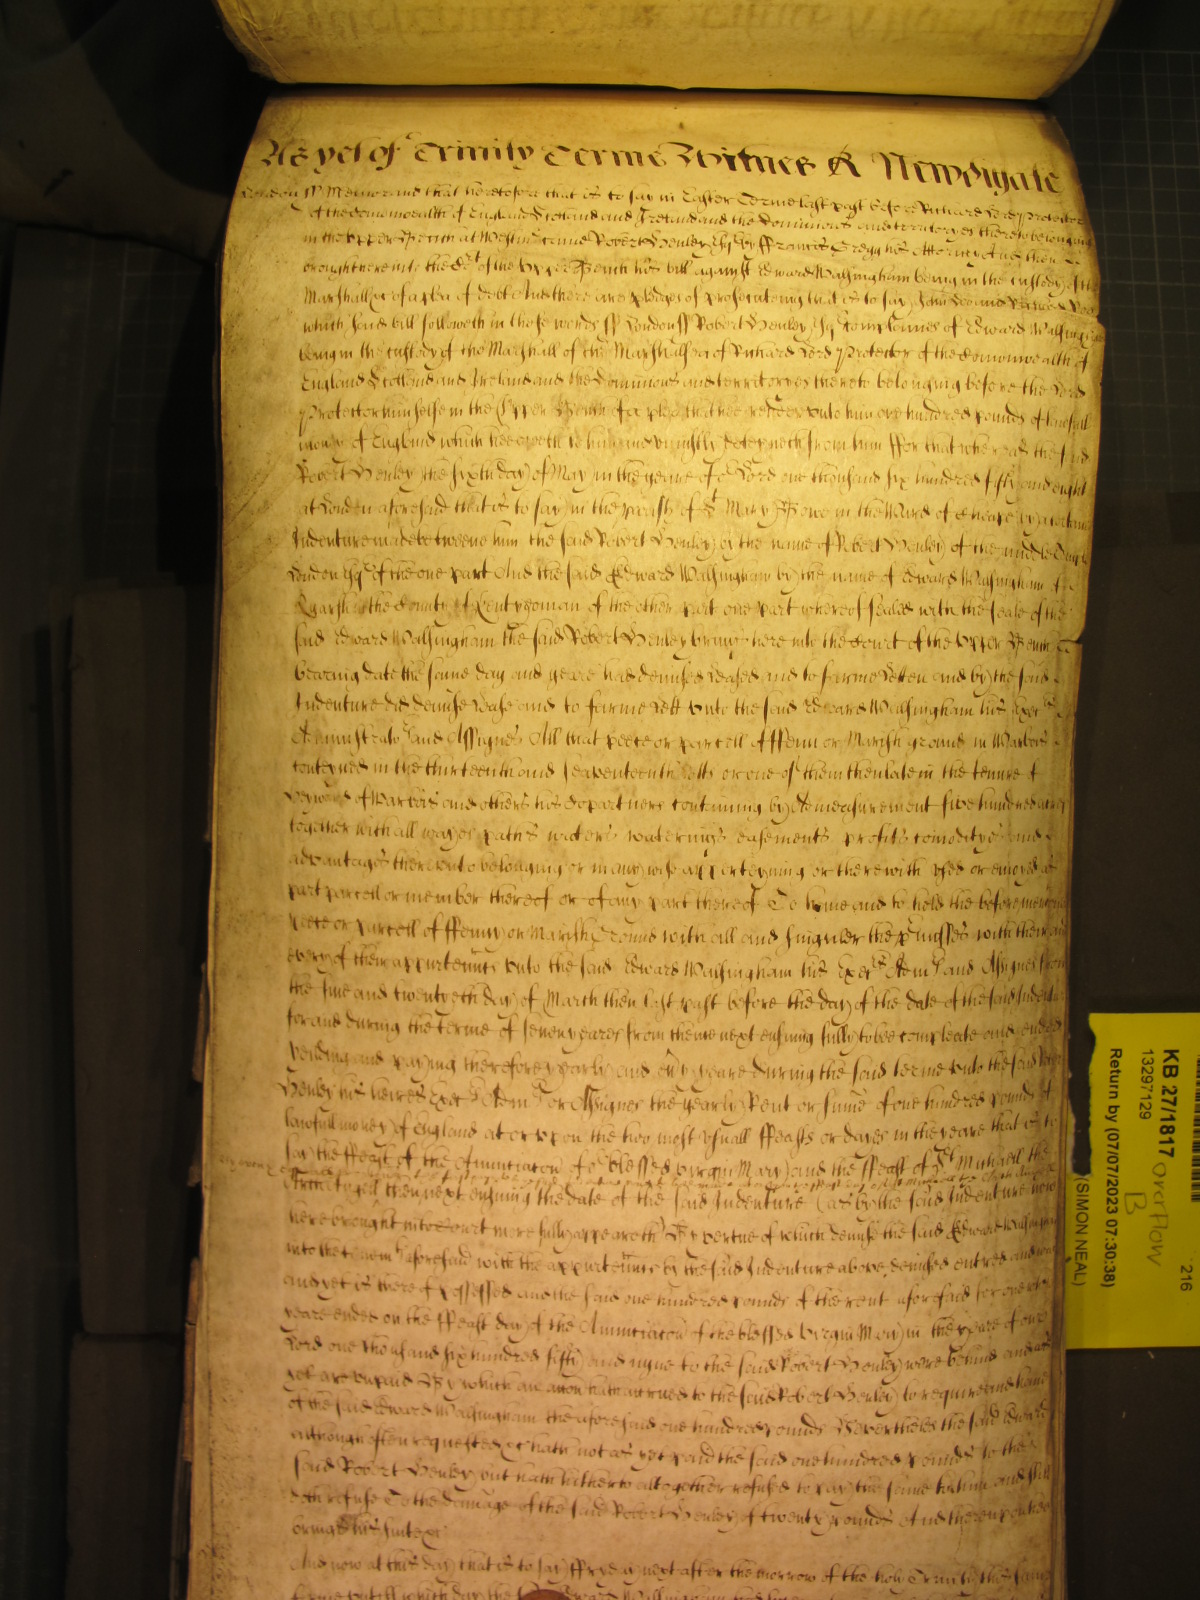 As yet of Trinity Terme Witnes R Newdigate
London ss Memorand that heretofore that is to say in Easter Terme last past before Richard Lord Protector
of the Comonwealth of England Scotland and Ireland and the Dominions and territoryes thereto belonging
in the upper Bench at Westm came Robert Henley Esq by Francis Gregg his Attorney And then
brought here into the Court of the Upper Bench his bill against Edward Walsingham being in the custody of the
Marshall &c of a plea of debt And there are pledges of prosecuting that is to say John Doe and Richard Roe
which said bill followeth in these words ss London ss Robert Henley Esq complaines of Edward Walsingham
being in the custody of the Marshall of the Marshallsea of Richard Lord Protector of the Comonwealth of
England Scotland and Ireland and the Dominions and territoryes thereto belonging before the Lord
Protector himselfe in the Upper Bench of a plea that hee render unto him one hundred pounds of lawfull
money of England which hee oweth to him and uniustly deteyneth from him ffor that whereas the said
Robert Henley the sixth day of May in the yeare of or Lord one thousand six hundred fifty and eight
at London aforesaid that is to say in the parish of St Mary Bowe in the Ward of Cheape by a certaine
Indenture made betweene him the said Robert Henley by the name of Robert Henley of the middle Temple
London Esqr of the one part And the said Edward Walsingham by the name of Edward Walsingham of
in the County of Kent yeoman of the other part one part whereof sealed with the seale of the
said Edward Walsingham the said Robert Henley brings here into the Court of the Upper Bench
bearing date the same day and yeare had demised leased and to farme letten and by the said
Indenture did demise lease and to farme lett unto the said Edward Walsingham his Execrs
Administrators and Assignes All that peece or parcell of ffenn or Marish ground in
conteyned in the thirteenth and seaventeenth or one of them then late in the tenure of
of and others his copartners containing by admeasurement five hundred acres
together with all wayes paths waters waterings easements profits comodityes and
advantages thereunto belonging or in any wise apperteyning or therewith used or enioyed as
part parcell or member thereof or of any part thereof To have and to hold the beforementioned
peece or parcell of ffenn or Marish Ground with all and singuler the premisses with their and
every of their appurtenncs unto the said Edward Walsingham his Execrs Admrs and Assignes from
the five and twentyeth day of March then last past before the day of the date of the said Indenture
for and during the terme of seven yeares from thence next ensuing fully to bee compleate and ended
Yeilding and paying therefore yearly and every yeare during the said terme unto the said Robert
Henley his heires Execrs Admrs or Assignes the yearly Rent or sume of one hundred pounds of
lawfull money of England at or upon the two most usuall ffeasts or dayes in the yeare that is to
say the ffeast of the Annunciacon of or blessed virgin Mary and the ffeast of St Michaell the
Archangell then next ensuing the date of the said Indenture as by the said Indenture now
here brought into Court more fully appeareth By vertue of which demise the said Edward Walsingham
into the aforesaid with the appurtenncs by the said Indenture above demised entred and was
and yet is thereof possessed and the said one hundred pounds of the rent aforesaid for one whole
yeare ended on the ffeast day of the Annunciacon of the blessed virgin Mary in the yeare of our
Lord one thousand six hundred fifty and nyne to the said Robert Henley were behind and as
yet are unpaid By which an accon hath accrued to the said Robert Henley to require and have
of the said Edward Walsingham the aforesaid one hundred pounds Nevertheles the said Edward
although often requested &c hath not as yet paid the said one hundred pounds to the
said Robert Henley but hath hitherto altogether refused to pay the same to him and still
doth refuse To the damage of the said Robert Henley of twenty pounds And thereupon hee
brings his suite &c
And now at this day that is to say ffryday next after the morrow of the holy Trinity this same
KB 27/1817
13297129
overflow
B
216
Return by (07/07/2023 07:30:38)
(SIMON NEAL)